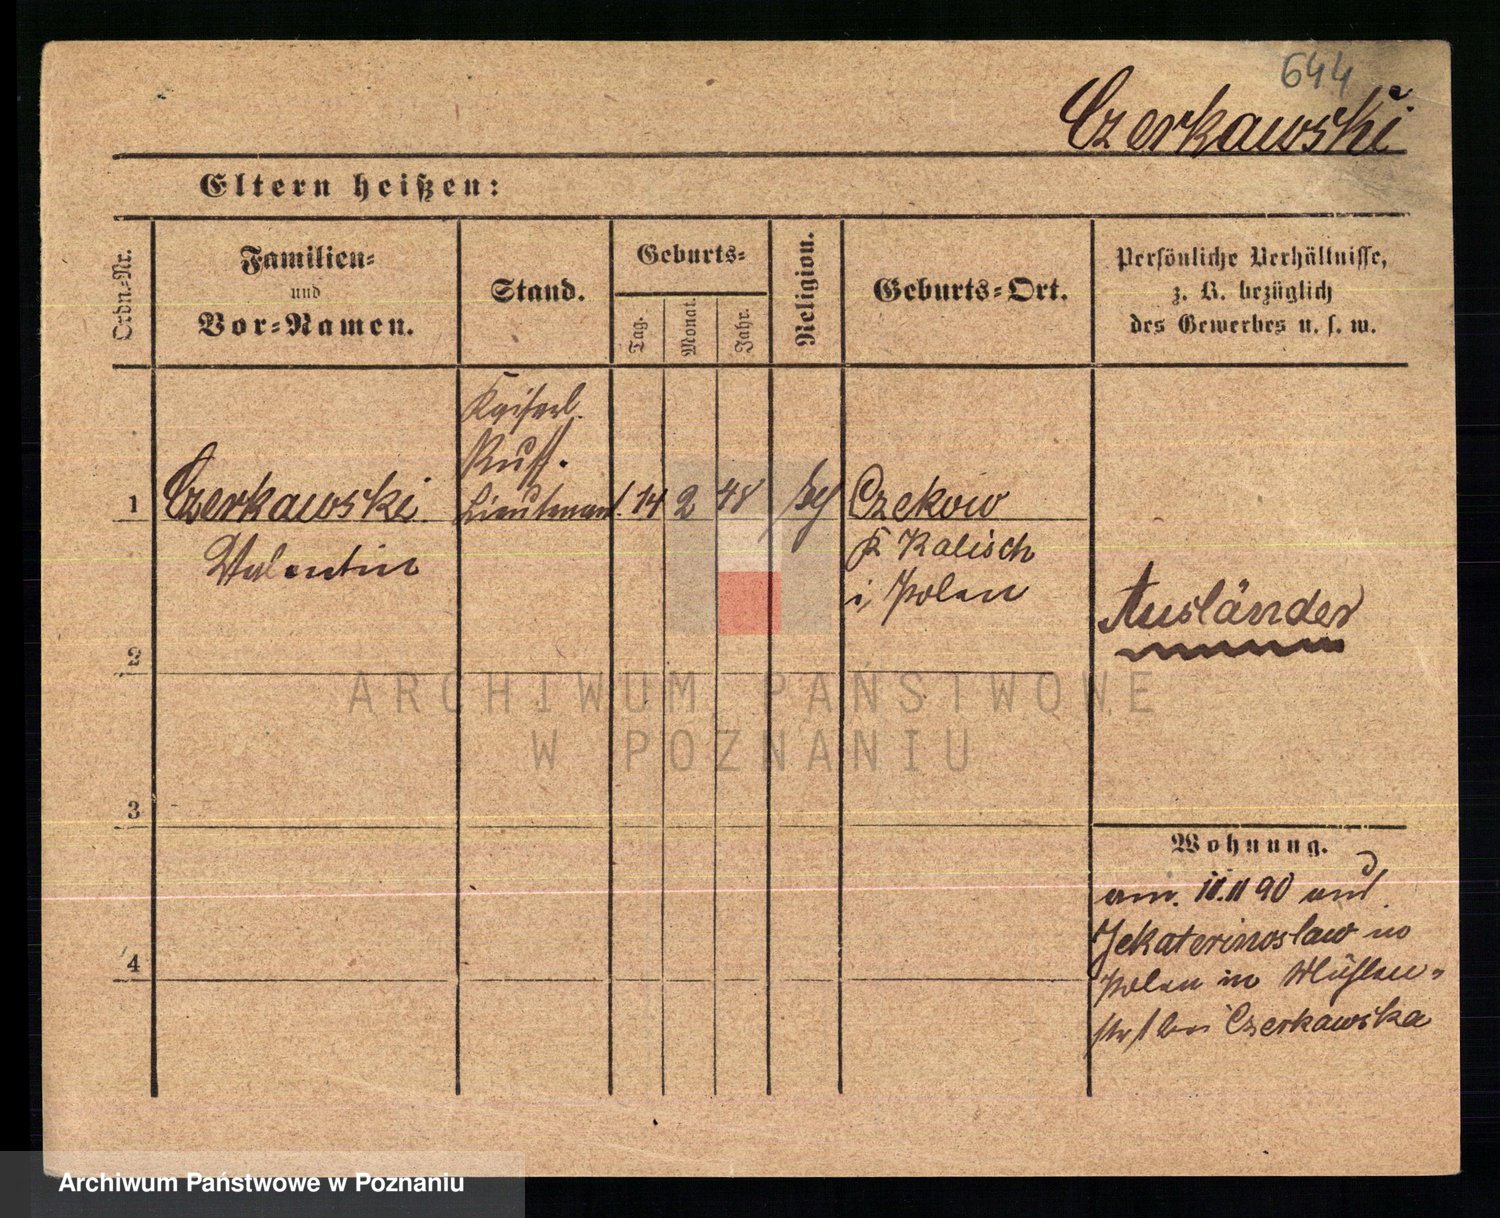 644
Czerkawski
Eltern heißen:
Ordn.-Nr.
Familien-
und
Vor-Namen.
Stand.
Geburts-
Tag.
Monat.
Jahr.
Religion.
Geburts-Ort.
Persönliche Verhältnisse,
z. B. bezüglich
des Gewerbes u. s. w.
Kaiserl.
Russ.
1 Czerkawski Lieutenant. 14 2 48 Czekow
Valentin
Kalisch
i. Polen
Ausländer
2
ARCHIWUM PAŃSTWOWE
W POZNANIU
3
Wohnung.
am 11.11 90 aus
Jekaterinoslaw in
4
Polen in Mühlen-
str bei Czerkawska
Archiwum Państwowe w Poznaniu